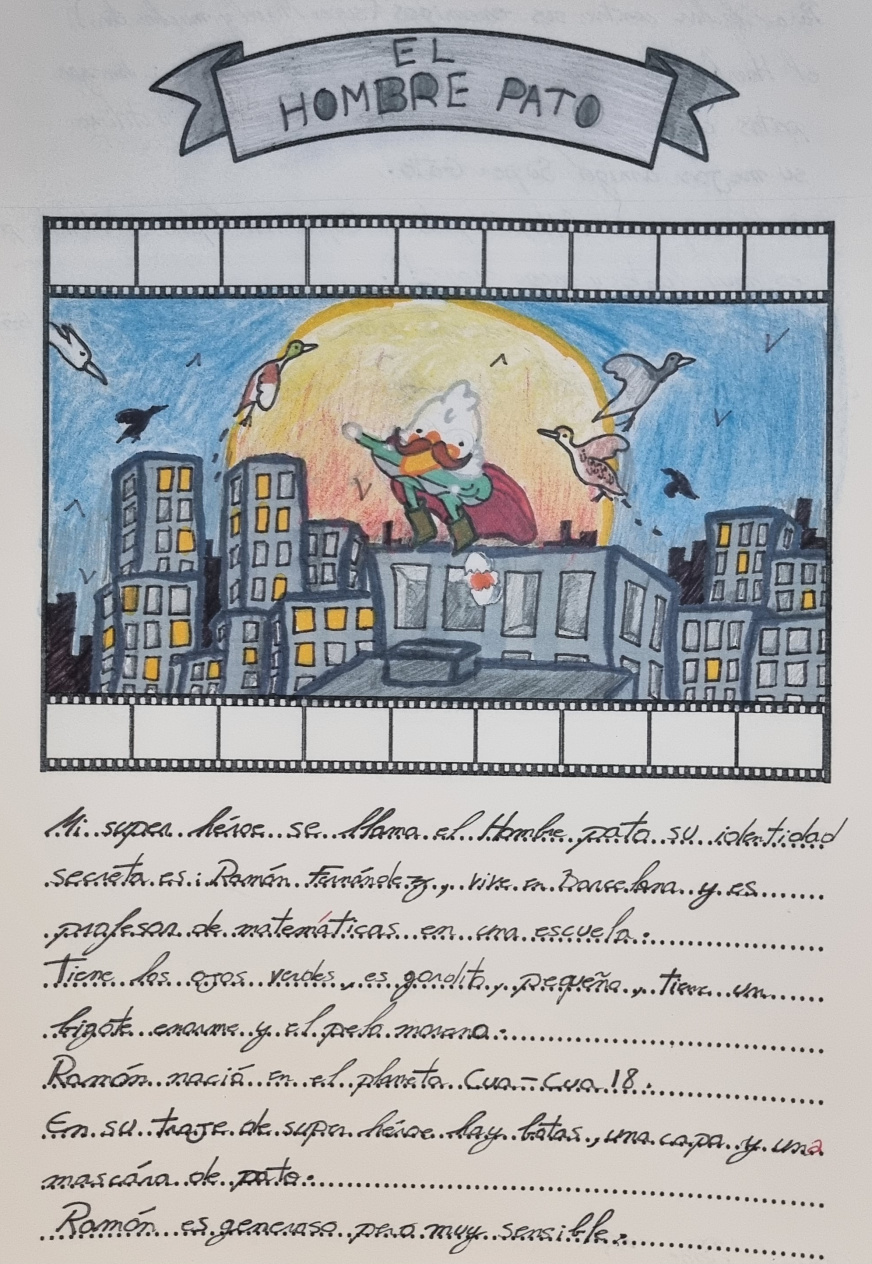 EL
HOMBRE PATO
Mi super héroe se llama el Hombre pato su identidad
secreta es: Ramón Fernández, vive en Barcelona y es
profesor de matemáticas en una escuela.
Tiene los ojos verdes, es gordito, pequeño, tiene un
bigote enorme y el pelo moreno.
Ramón nació en el planeta Cua-Cua 18.
En su traje de super héroe hay botas, una capa y una
mascára de pato.
Ramón es generoso pero muy sensible.